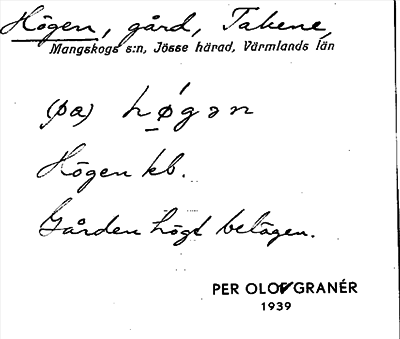 Högen, gård, Takene,
Mangskogs s:n, Jösse härad, Värmlands län
(pa) hǿ̠gən
Högen kb.
Gården högt belägen.
PER OLOF GRANÉR
1939